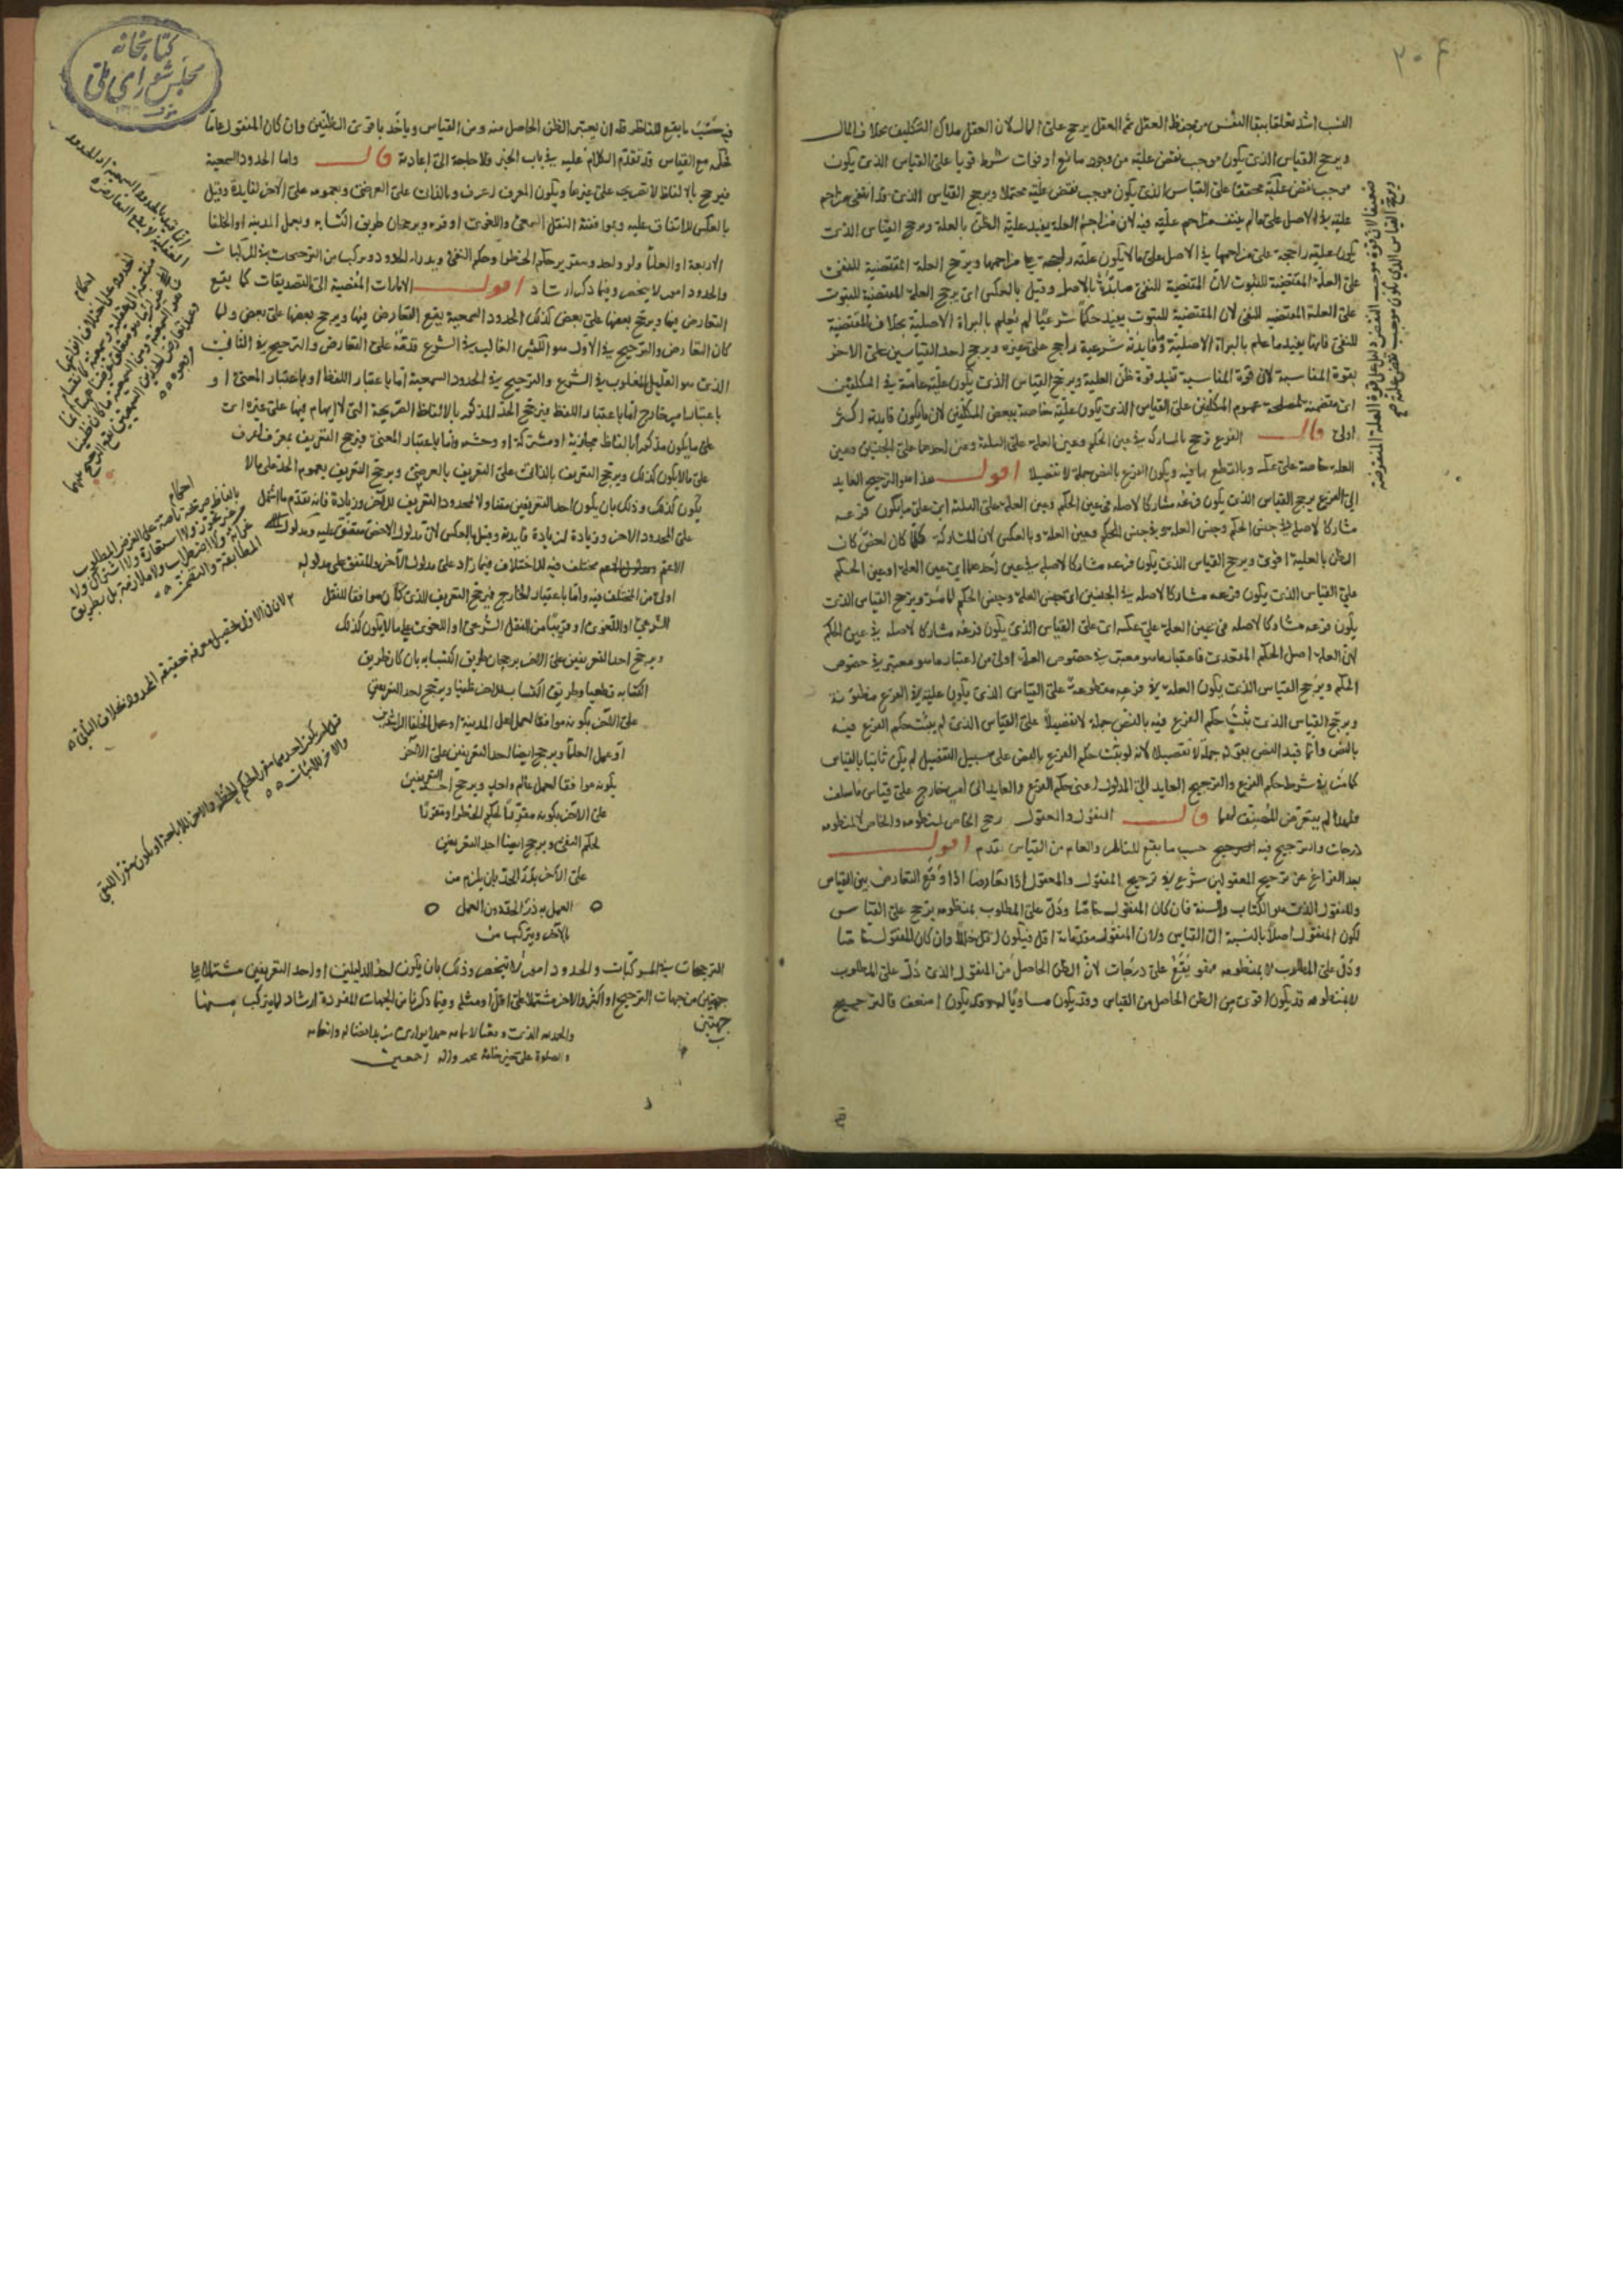 ٢٠٦
النسب اشد تعلقا ببقا النفس من حفظ العقل ثم العقل يرجح على المال لان العقل ملاك التكليف بخلاف المال
ويرجح القياس الذى يكون موجب نقض علته من وجود مانع او فوات شرط قويا على القياس الذى يكون
موجب نقض علته محققا على القياس الذى يكون موجب نقض علته محتملا ويرجح القياس الذى قد انتفى مزاحم
علته فى الاصل على ما لم ينتف مزاحم علته فيه لان مزاحم العلة يفيد علية الظن بالعلة ويرجح القياس الذى
يكون علته راجحة على مزاحمها فى الاصل على ما لا يكون علته راجحة على مزاحمها ويرجح العلة المقتضية للنفى
على العلة المقتضية للثبوت لان المقتضية للنفى بالاصل وقيل بالعكس اى يرجح العلة المقتضية للثبوت
على العلة المقتضية للنفى لان المقتضية للثبوت يفيد حكما شرعيا لم يعلم بالبراة الاصلية بخلاف المقتضية
للنفى فانها يفيد ما علم بالبراة الاصلية وما فايدته شرعية راجح على غيره ويرجح احد القياسين على الاخر
بقوة المناسبة لان قوة المناسبة تفيد قوة ظن العلية ويرجح القياس الذى يكون علته عامة فى المكلفين
اى متضمنة لمصلحة عموم المكلفين على القياس الذى يكون علته خاصة ببعض المكلفين لان ما يكون فايدته اكثر
اولى قال الفرع ترجح بالمشاركة فى عين الحكم وعين العلة على الثلثة وعين احدهما على الجنسين وعين
العلة خاصة على عكسه وبالقطع بها فيه ويكون الفرع بالنص جملة لا تفصيلا اقول هذا هو الترجيح العايد
الى الفرع يرجح القياس الذى يكون فرعه مشاركا لاصله فى عين الحكم وعين العلة على الثلثة اى على ما يكون فرعه
مشاركا لاصله فى جنس الحكم وجنس العلة وفى جنس الحكم وعين العلة وبالعكس لان المشاركة كلما كان اخص كان
الظن بالعلية اقوى ويرجح القياس الذى يكون فرعه مشاركا لاصله فى عين احدهما اى عين العلة او عين الحكم
على القياس الذى يكون فرعه مشاركا لاصله فى الجنسين اى جنس العلة وجنس الحكم لما مر ويرجح القياس الذى
يكون فرعه مشاركا لاصله فى عين العلة على عكسه اى على القياس الذى يكون فرعه مشاركا لاصله فى عين الحكم
لان العلة اصل الحكم المتعدى فاعتبار ما هو معتبر فى خصوص العلة اولى من اعتبار ما هو معتبر فى خصوص
الحكم ويرجح القياس الذى يكون العلة فى فرعه مقطوعة على القياس الذى يكون علته فى الفرع مظنونة
ويرجح القياس الذى يثبت حكم الفرع فيه بالنص جملة لا تفصيلا على القياس الذى لم يثبت حكم الفرع فيه
بالنص وانما قيد النص بقوله جملة لا تفصيلا لانه لو ثبت حكم الفرع بالنص على سبيل التفصيل لم يكن ثابتا بالقياس
كما مر فى شروط حكم الفرع والترجيح العايد الى المدلول اعنى حكم الفرع والعايد الى امر خارج على قياس ما سلف
فلهذا لم يتعرض المصنف لهما قال المنقول والمعقول رجح الخاص بمنطوقه والخاص لا بمنطوقه
درجات والترجيح فيه حسب ما يقع للناظر والعام مع القياس تقدم اقول
بعد الفراغ عن ترجيح المعقولين شرع فى ترجيح المنقول والمعقول اذا تعارضا اذا وقع التعارض بين القياس
والمنقول الذى هو الكتاب والسنة فان كان المنقول خاصا ودل على المطلوب بمنطوقه يرجح على القياس
لكون المنقول اصلا بالنسبة الى القياس ولان المنقول مقدماته اقل فيكون اقل خللا وان كان المنقول خاصا
ودل على المطلوب لا بمنطوقه فهو يقع على درجات لان الظن الحاصل من المنقول الذى دل على المطلوب
لا بمنطوقه قد يكون اقوى من الظن الحاصل من القياس وقد يكون مساويا له وقد يكون اضعف فالترجيح
فيه
ضعيفا لان قوة موجب النقض دليل على قوة العلة المنقوضة
ويرجح القياس الذى يكون موجب نقض علته صح
كتابخانه
مجلس شوراى ملى
فيه حسب ما يقع للناظر فله ان يعتبر الظن الحاصل منه ومن القياس وياخذ باقوى الظنين وان كان المنقول عاما
فحكمه مع القياس قد تقدم الكلام عليه فى باب الخبر فلا حاجة الى اعادته قال واما الحدود السمعية
فيرجح بالالفاظ الصريحة على غيرها ويكون المعرف اعرف وبالذاتى على العرضى وبعمومه على الاخر لفايدة وقيل
بالعكس للاتفاق عليه وبموافقته النقل السمعى واللغوى او قربه وبرجحان طريق اكتسابه وبعمل المدينة او الخلفا
الاربعة او العلما ولو واحد وبتقرير حكم الحظر او حكم النفى وبدرء الحدود ويتركب من الترجيحات فى المركبات
والحدود امور لا ينحصر وفيما ذكر ارشاد اقول الامارات المفضية الى التصديقات كما يقع
التعارض بينها ويرجح بعضها على بعض كذلك الحدود السمعية يقع التعارض بينها ويرجح بعضها على بعض ولما
كان التعارض والترجيح فى الاول هو الكثير الغالب فى الشرع قدمه على التعارض والترجيح فى الثانى
الذى هو القليل المغلوب فى الشرع والترجيح فى الحدود السمعية اما باعتبار اللفظ او باعتبار المعنى او
باعتبار امر خارج اما باعتبار اللفظ فيرجح الحد المذكور بالالفاظ الصريحة التى لا ابهام فيها على غيره اى
على ما يكون مذكورا بالفاظ مجازية او مشتركة او وحشية واما باعتبار المعنى فيرجح التعريف بمعرف اعرف
على ما لا يكون كذلك ويرجح التعريف بالذاتى على التعريف بالعرضى ويرجح التعريف بعموم الحد على ما لا
يكون كذلك وذلك بان يكون احد التعريفين متناولا لمحدود التعريف الاخر وزيادة فانه تقدم ما اشتمل
على المحدود الاخر وزيادة لزيادة فايدته وقيل بالعكس لان مدلول الاخص متفق عليه ومدلول
الاعم مختلف فيه للاختلاف فيما زاد على مدلول الاخر والمتفق على مدلوله
اولى من المختلف فيه واما باعتبار الخارج فيرجح التعريف الذى كان موافقا للنقل
الشرعى او اللغوى او قريبا من النقل الشرعى او اللغوى على ما لا يكون كذلك
ويرجح احد التعريفين على الاخر برجحان طريق اكتسابه بان كان طريق
اكتسابه قطعيا وطريق اكتساب الاخر ظنيا ويرجح احد التعريفين
على الاخر بكونه موافقا لعمل اهل المدينة او عمل الخلفا الراشدين
او عمل العلما ويرجح ايضا احد التعريفين على الاخر
بكونه موافقا لعمل عالم واحد ويرجح احد التعريفين
على الاخر بكونه مقررا لحكم الحظر او مقررا
لحكم النفى ويرجح ايضا احد التعريفين
على الاخر بدرء الحد بان يلزم من
العمل به درء الحد دون العمل
بالاخر ويتركب من
الترجيحات فى المركبات والحدود امور لا تنحصر وذلك بان يكون احد الدليلين او احد التعريفين مشتملا على
جهتين من جهات الترجيح او اكثر والاخر مشتملا على اقل او مثله وفيما ذكرنا من الجهات المفردة ارشاد لما يتركب منها
جهتين
والصلوة على محمد واله اجمعين
لان فى الاول تحصيل معرفة حقيقة المحدود بخلاف الثانى
والاخر للاثبات